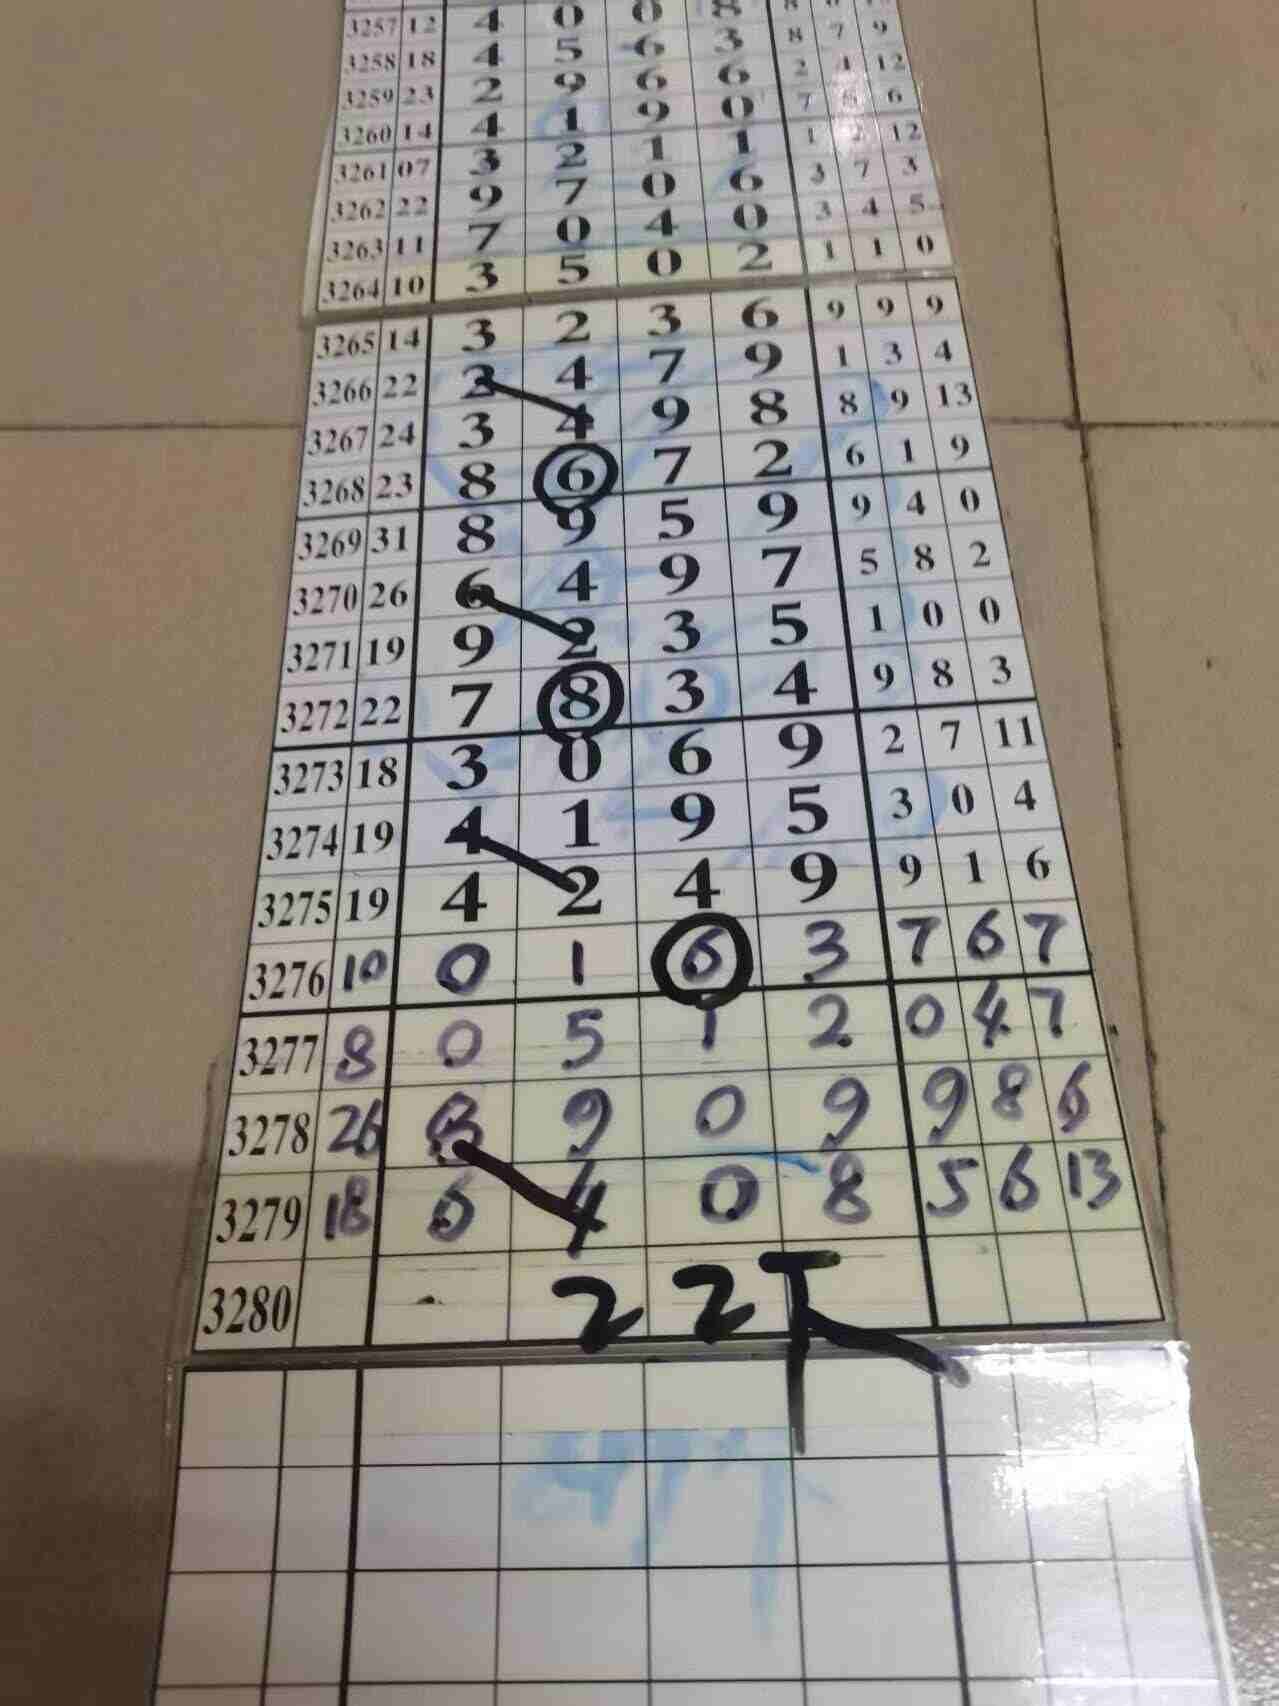 3257 12 4 0 0 8
3258 18 4 5 6 3 8 7 9
3259 23 2 9 6 6 2 4 12
3260 14 4 1 9 0 7 6
3261 07 3 2 1 1 1 2 12
3262 22 9 7 0 6 3 7 3
3263 11 7 0 4 0 3 4 5
3264 10 3 5 0 2 1 1 0
3265 14 3 2 3 6 9 9 9
3266 22 2 4 7 9 1 3 4
3267 24 3 4 9 8 8 9 13
3268 23 8 6 7 2 6 1 9
3269 31 8 9 5 9 9 4 0
3270 26 6 4 9 7 5 8 2
3271 19 9 2 3 5 1 0 0
3272 22 7 8 3 4 9 8 3
3273 18 3 0 6 9 2 7 11
3274 19 4 1 9 5 3 0 4
3275 19 4 2 4 9 9 1 6
3276 10 0 1 6 3 7 6 7
3277 8 0 5 1 2 0 4 7
3278 26 8 9 0 9 9 8 6
3279 18 6 4 0 8 5 6 13
3280 2 2 下